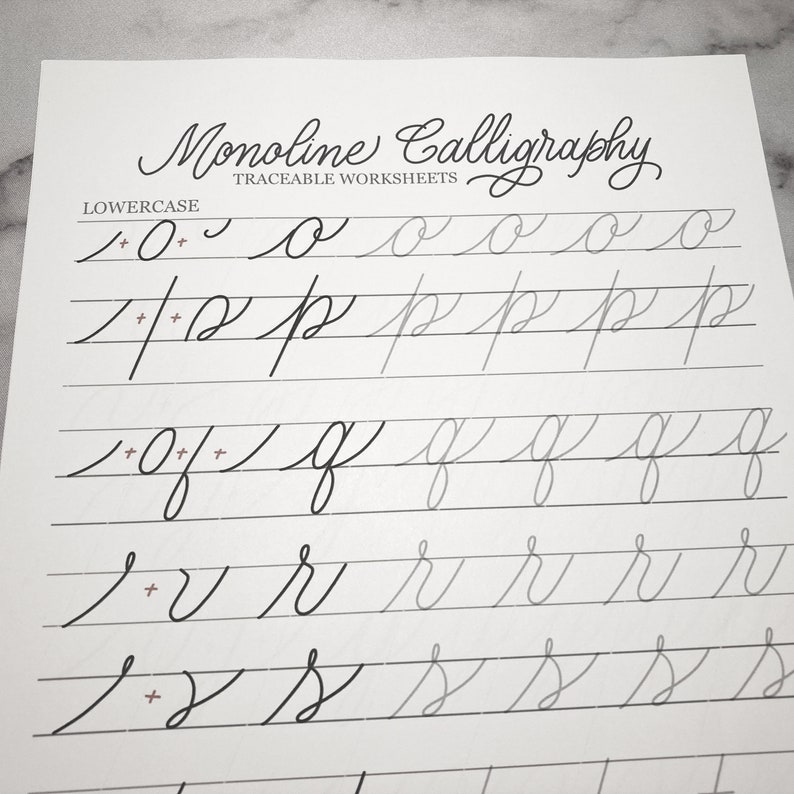 Monoline Calligraphy
TRACEABLE WORKSHEETS
LOWERCASE
+ o + o o o o o
+ + p p p p p
+ + + q q q q q
+ r r r r r
+ s s s s s